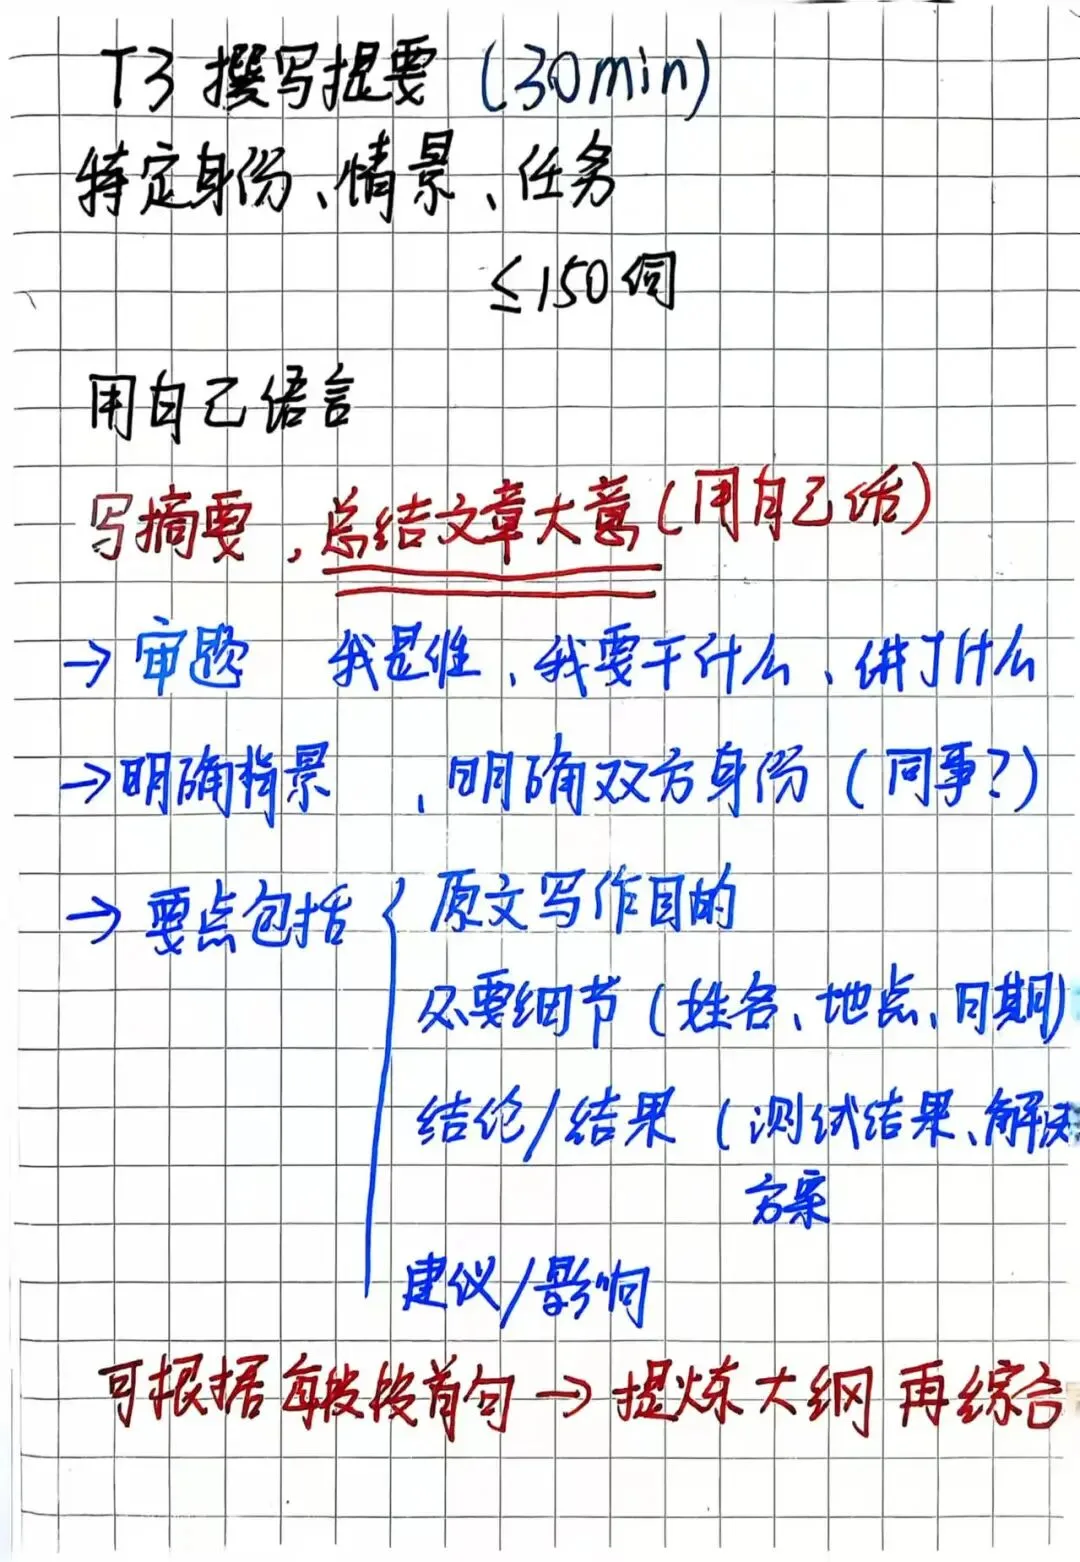 T3 撰写提要 (30min)
特定身份、情景、任务
≤150词
用自己语言
写摘要，总结文章大意(用自己话)
→审题 我是谁、我要干什么、讲了什么
→明确背景、明确双方身份(同事?)
→要点包括{原文写作目的
必要细节(姓名、地点、日期)
结论/结果(测试结果、解决
方案
建议/影响
可根据每段段首句→提炼大纲 再综合